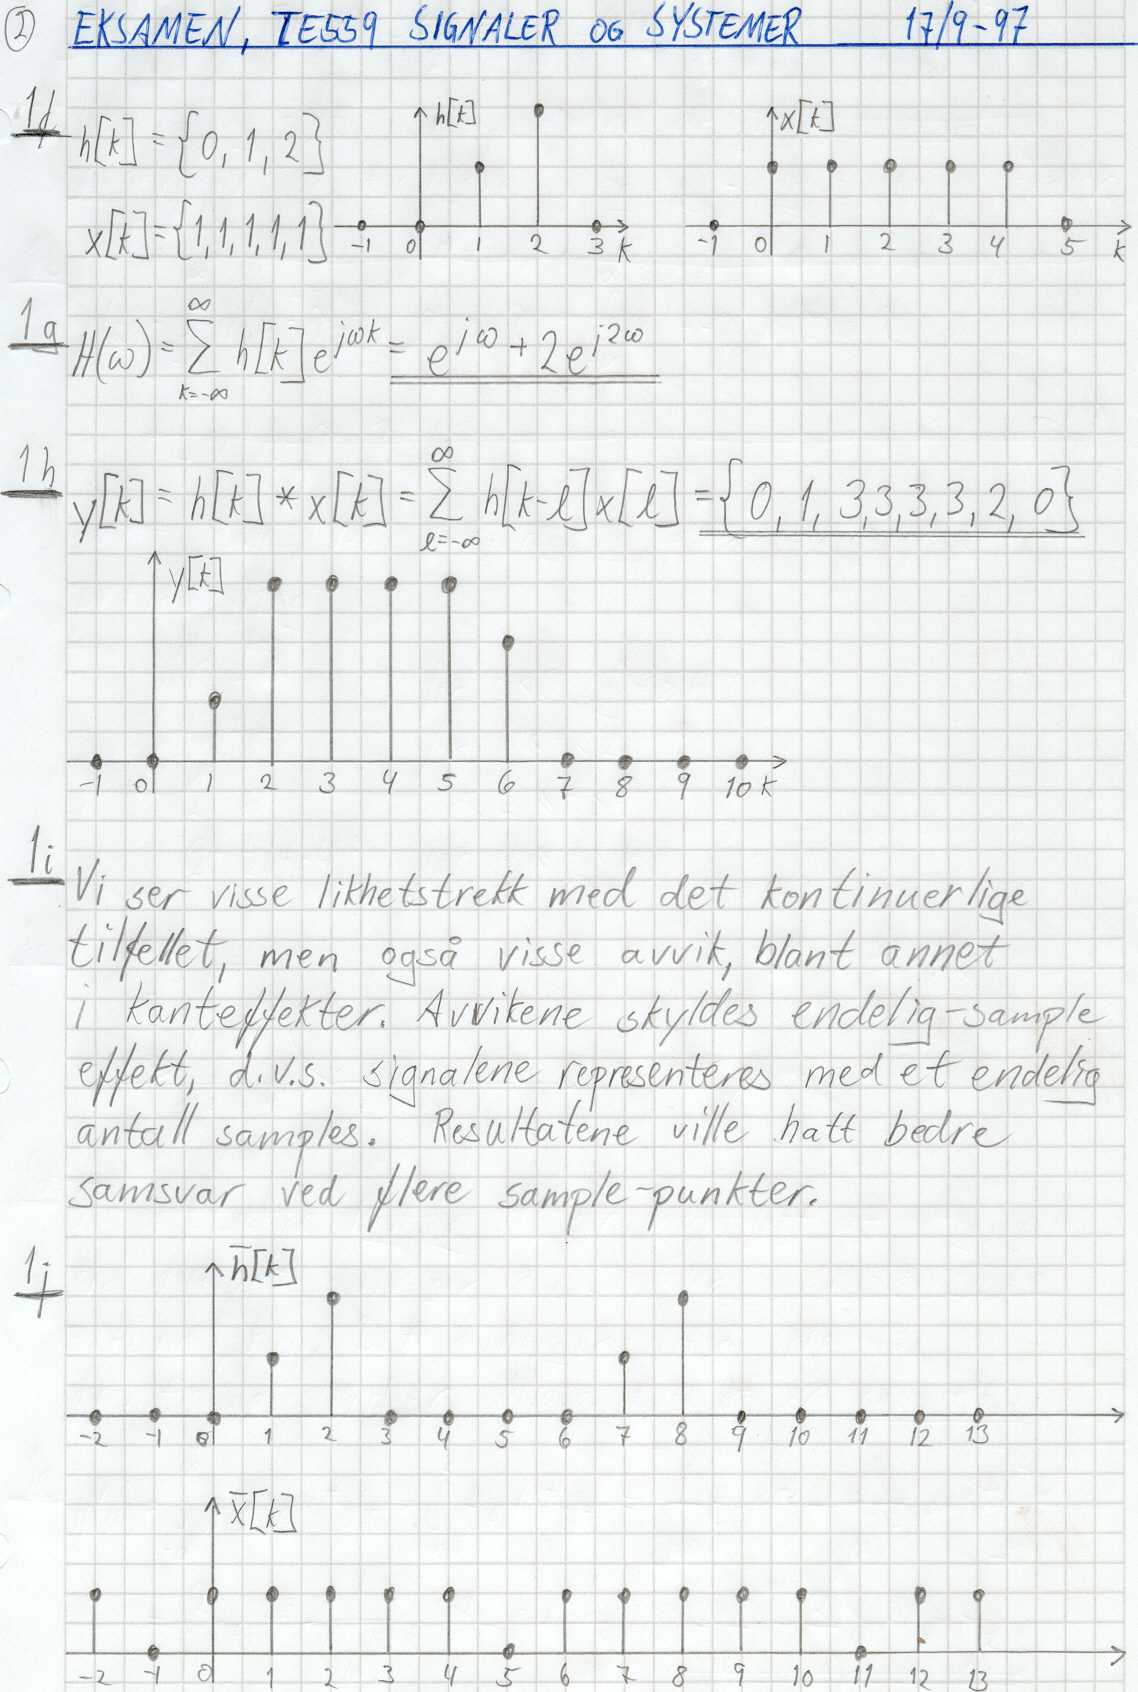 ② EKSAMEN, TE559 SIGNALER OG SYSTEMER 17/9-97
1f h[k] = {0, 1, 2}
x[k] = {1, 1, 1, 1, 1}
h[k]
-1 0 1 2 3 k
x[k]
-1 0 1 2 3 4 5 k
1g H(ω) = ∑_{k=-∞}^{∞} h[k] e^{jωk} = e^{jω} + 2e^{j2ω}
1h y[k] = h[k] * x[k] = ∑_{ℓ=-∞}^{∞} h[k-ℓ] x[ℓ] = {0, 1, 3, 3, 3, 3, 2, 0}
y[k]
-1 0 1 2 3 4 5 6 7 8 9 10 k
1i Vi ser visse likhetstrekk med det kontinuerlige
tilfellet, men også visse avvik, blant annet
i kanteffekter. Avvikene skyldes endelig-sample
effekt, d.v.s. signalene representeres med et endelig
antall samples. Resultatene ville hatt bedre
samsvar ved flere sample-punkter.
1j h̄[k]
-2 -1 0 1 2 3 4 5 6 7 8 9 10 11 12 13
x̄[k]
-2 -1 0 1 2 3 4 5 6 7 8 9 10 11 12 13